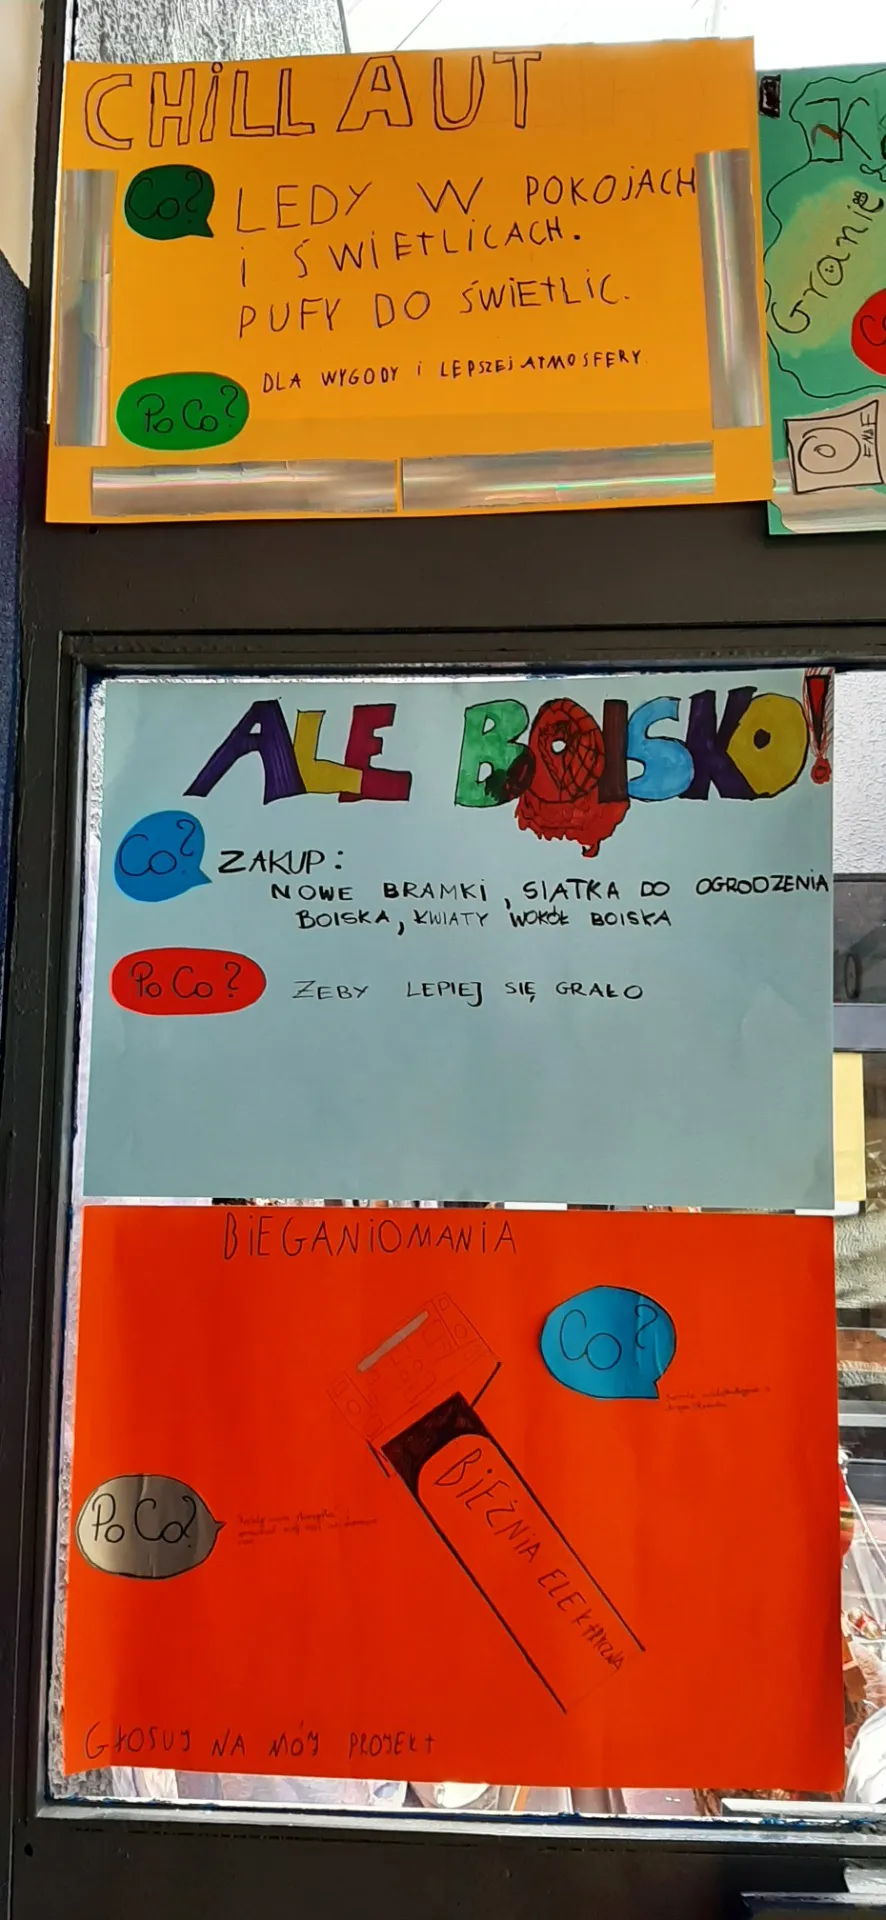 CHILL AUT
Co? LEDY W POKOJACH
I ŚWIETLICACH.
PUFY DO ŚWIETLIC.
Po Co? DLA WYGODY I LEPSZEJ ATMOSFERY.
Granie
ALE BOISKO!
Co? ZAKUP:
NOWE BRAMKI, SIATKA DO OGRODZENIA
BOISKA, KWIATY WOKÓŁ BOISKA
Po Co? ŻEBY LEPIEJ SIĘ GRAŁO
BIEGANIOMANIA
Co?
BIEŻNIA ELEKTRYCZNA
Po Co?
GŁOSUJ NA MÓJ PROJEKT